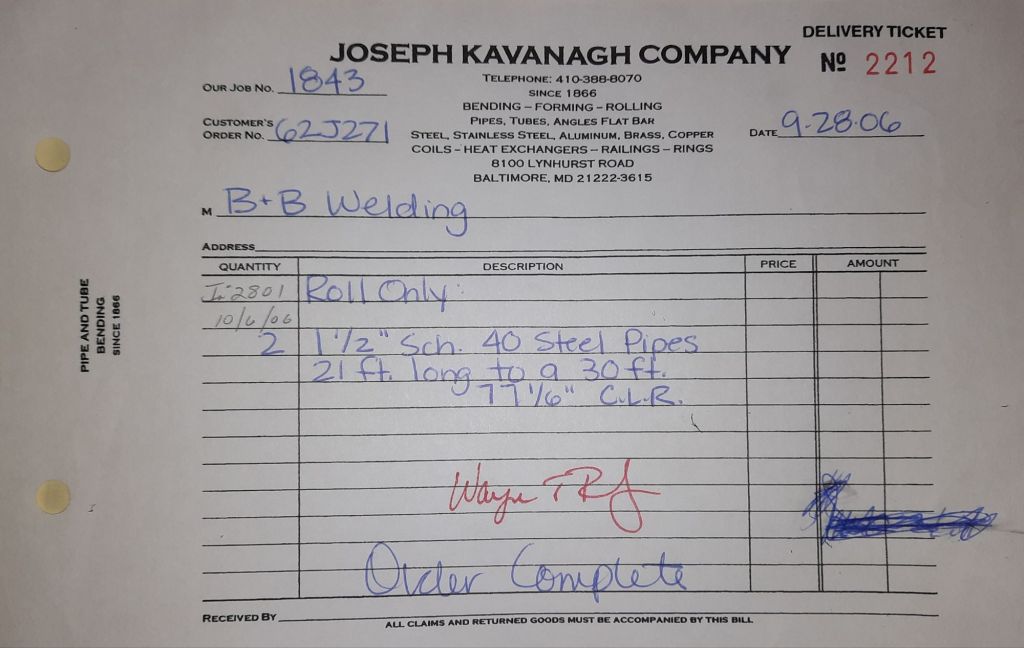 DELIVERY TICKET
JOSEPH KAVANAGH COMPANY
Nº 2212
TELEPHONE: 410-388-8070
SINCE 1866
BENDING – FORMING – ROLLING
PIPES, TUBES, ANGLES FLAT BAR
STEEL, STAINLESS STEEL, ALUMINUM, BRASS, COPPER
COILS – HEAT EXCHANGERS – RAILINGS – RINGS
8100 LYNHURST ROAD
BALTIMORE, MD 21222-3615
OUR JOB NO. 1843
CUSTOMER'S
ORDER NO. 62J271
DATE 9-28-06
M B+B Welding
ADDRESS
QUANTITY DESCRIPTION PRICE AMOUNT
2801 Roll Only:
10/6/06
2 1 1/2" Sch. 40 Steel Pipes
21 ft. long to a 30 ft.
77 1/6" C.L.R.
Wayne
Order Complete
RECEIVED BY
ALL CLAIMS AND RETURNED GOODS MUST BE ACCOMPANIED BY THIS BILL
PIPE AND TUBE
BENDING
SINCE 1866